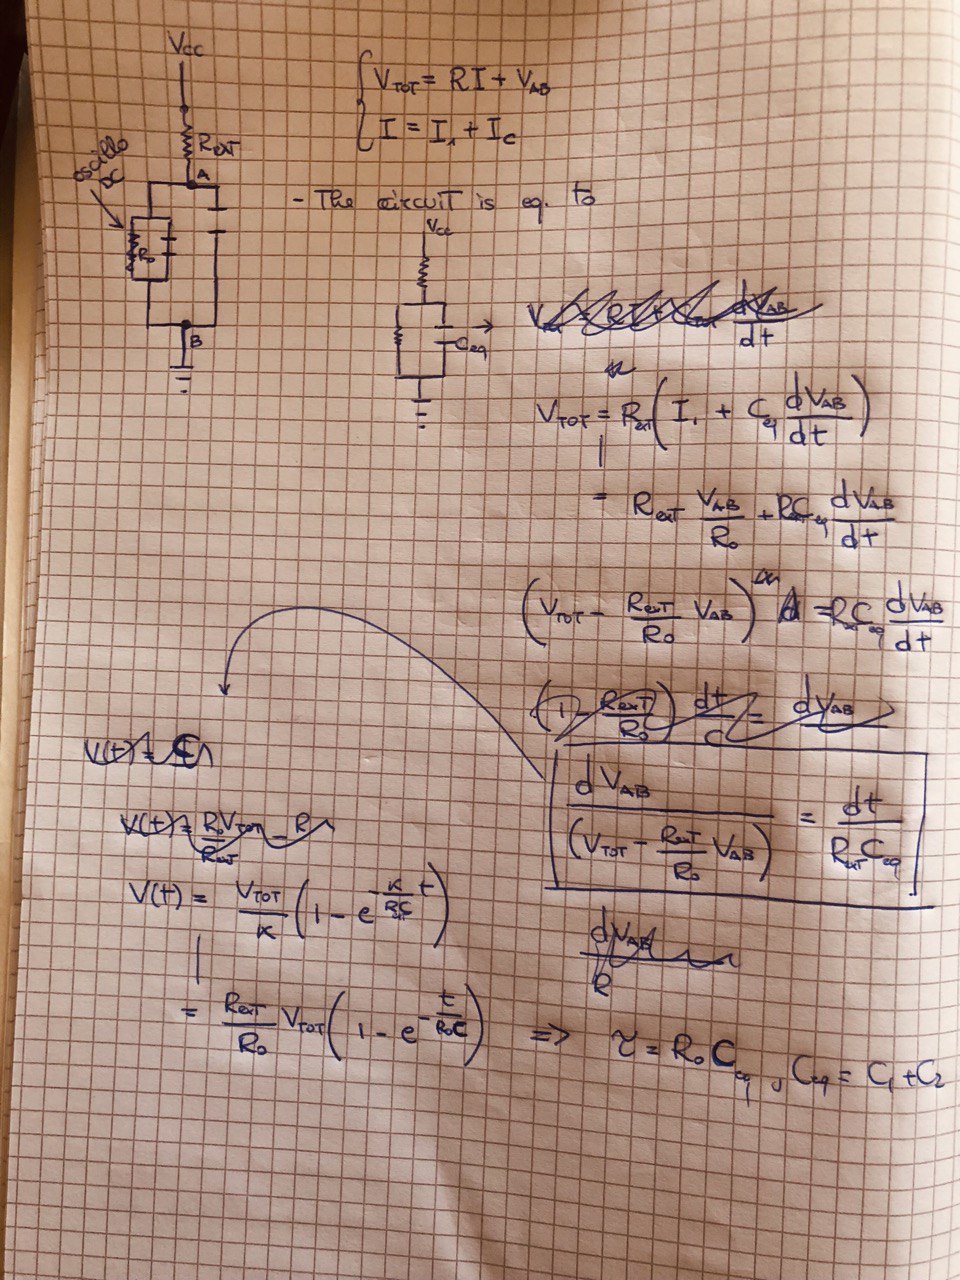 Vcc
V_TOT = RI + V_AB
I = I_1 + I_C
R_EXT
oscillo DC
A
R_0
B
- The circuit is eq. to
Vcc
C_eq
dV_AB/dt
V_TOT = R_ext (I_1 + C_eq dV_AB/dt)
= R_EXT V_AB/R_0 + R_ext C_eq dV_AB/dt
(V_TOT - R_EXT/R_0 V_AB) = R_ext C_eq dV_AB/dt
(1 - R_EXT/R_0) dt/C = dV_AB
dV_AB/(V_TOT - R_EXT/R_0 V_AB) = dt/(R_EXT C_eq)
dV_AB/R
V(t) =
V(t) = R_0 V_TOT/R_EXT - R
V(t) = V_TOT/K (1 - e^(-K/(R_ext C) t))
= R_EXT/R_0 V_TOT (1 - e^(-t/(R_0 C))) => τ = R_0 C_eq, C_eq = C_1 + C_2